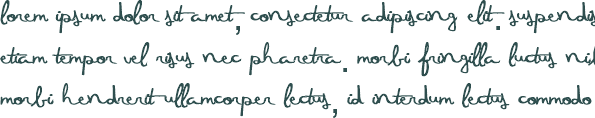 lorem ipsum dolor sit amet, consectetur adipiscing elit. suspendis
etiam tempor vel risus nec pharetra. morbi fringilla luctus
morbi hendrerit ullamcorper lectus, id interdum lectus commodo